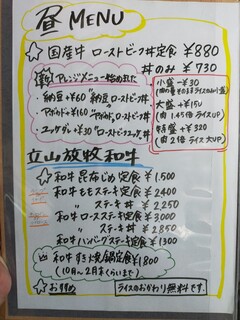 昼MENU
☆国産牛ローストビーフ丼定食 ¥880
丼のみ ¥730
アレンジメニュー始めました
・納豆+¥60 "納豆"ローストビーフ丼
・アボカド+¥160
・ユッケダレ+¥30
小盛 -¥30
大盛 +¥150
(肉1.45倍 ライスUP)
特盛 +¥320
(肉2倍 ライス大UP)
立山放牧和牛
☆和牛昆布じめ定食 ¥1,500
和牛ももステーキ定食 ¥2400
〃 ステーキ丼 ¥2250
和牛ロースステーキ定食 ¥3000
〃 ステーキ丼 ¥2850
和牛ハンバーグステーキ定食 ¥1300
和牛すき焼鍋定食 ¥1800
(10月~2月末ぐらいまで)
☆おすすめ
ライスのおかわり無料です。